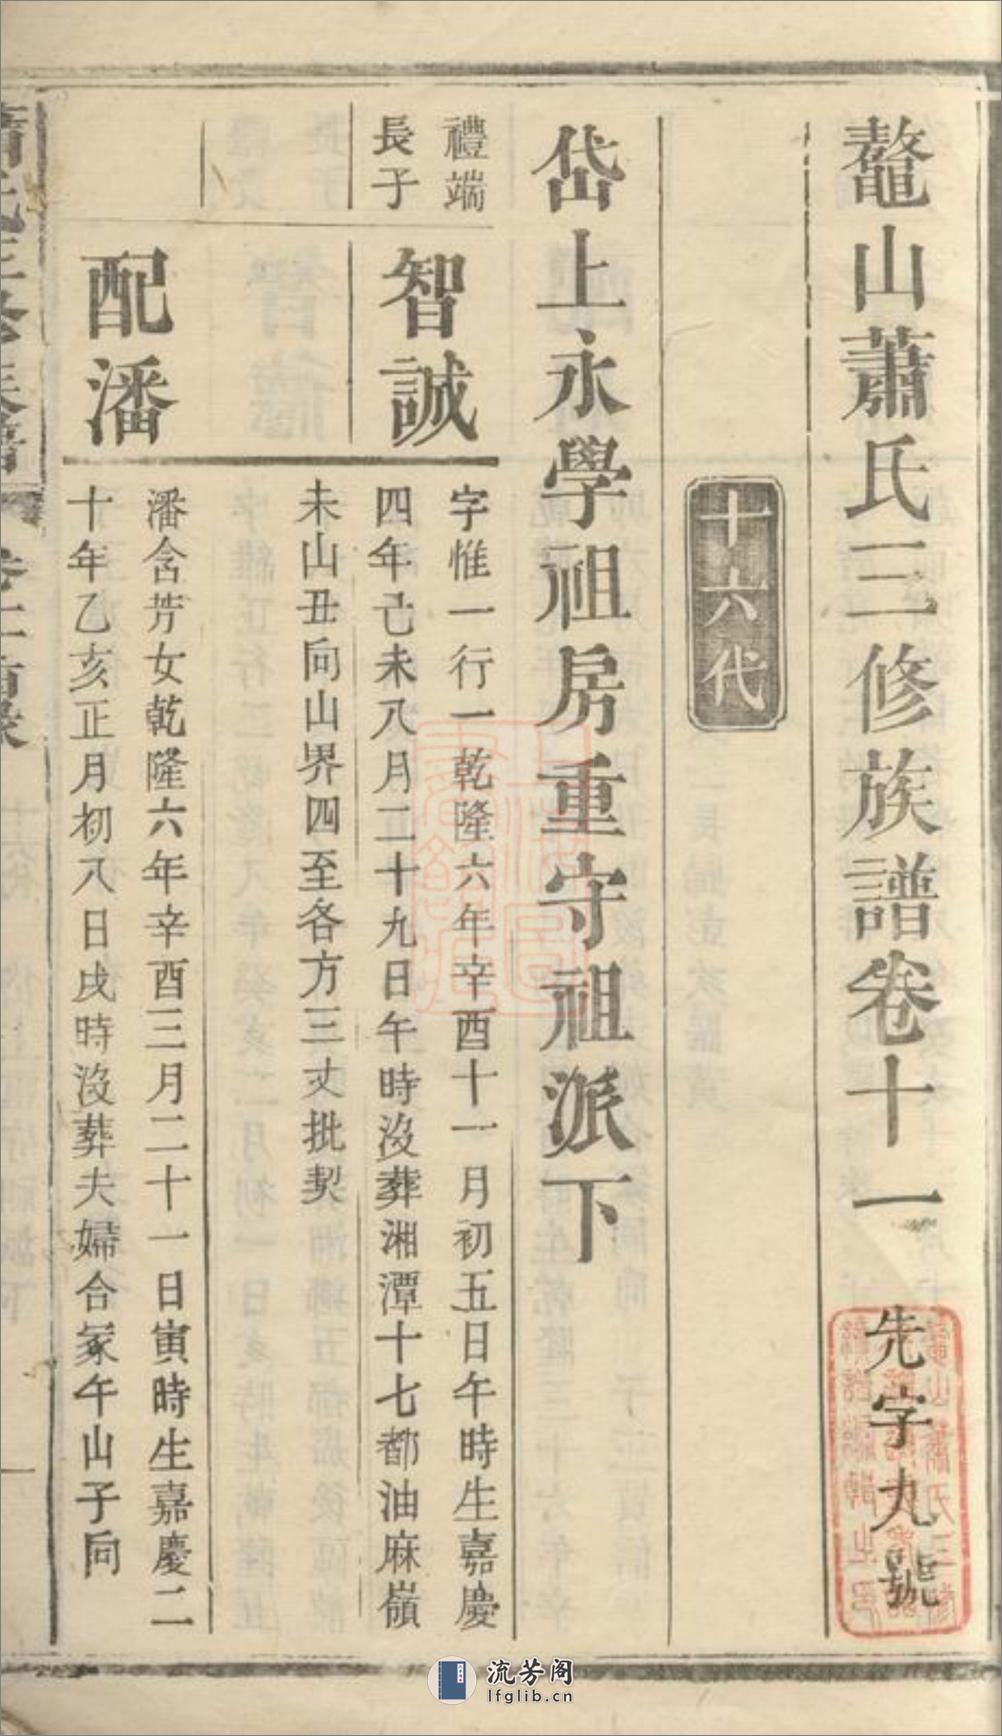 鼇山蕭氏三修族譜卷十一 先字九號
十六代
岱上永學祖房重守祖派下
禮端
長子
智誠
字惟一行一乾隆六年辛酉十一月初五日午時生嘉慶
四年己未八月二十九日午時没葬湘潭十七都油麻嶺
未山丑向山界四至各方三丈批契
配潘
潘含芳女乾隆六年辛酉三月二十一日寅時生嘉慶二
十年乙亥正月初八日戌時没葬夫婦合冢午山子向
一
流芳阁
lfglib.cn